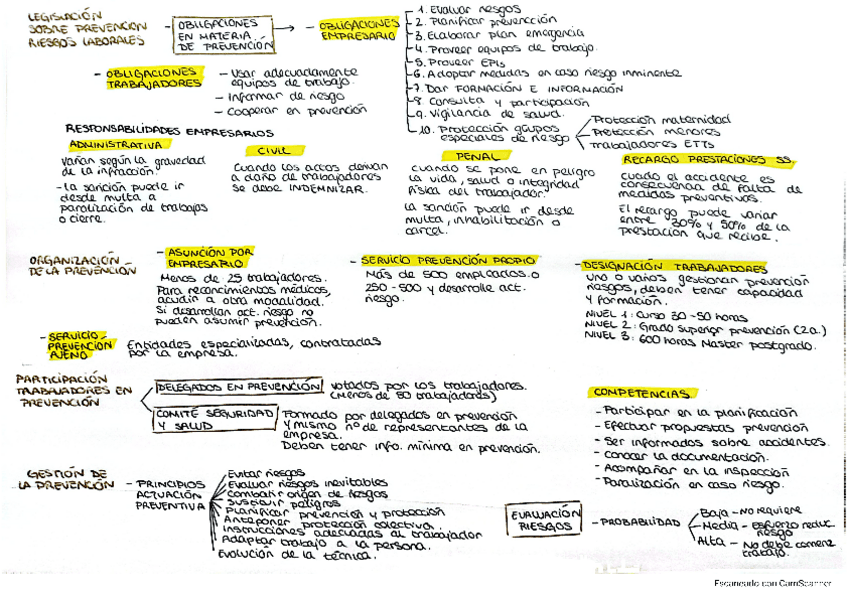 LEGISLACIÓN
SOBRE PREVENCIÓN
RIESGOS LABORALES
- OBLIGACIONES
EN MATERIA
DE PREVENCIÓN
- OBLIGACIONES
EMPRESARIO
1. Evaluar riesgos
2. Planificar prevención
3. Elaborar plan emergencia
4. Proveer equipos de trabajo.
5. Proveer EPIs
6. Adoptar medidas en caso riesgo inminente
7. Dar FORMACIÓN E INFORMACIÓN
8. Consulta y participación
9. Vigilancia de salud.
10. Protección grupos
especiales de riesgo
Protección maternidad
Protección menores
Trabajadores ETTs
- OBLIGACIONES
TRABAJADORES
- Usar adecuadamente
equipos de trabajo.
- Informar de riesgo
- Cooperar en prevención
RESPONSABILIDADES EMPRESARIOS
ADMINISTRATIVA
Varían según la gravedad
de la infracción.
- La sanción puede ir
desde multa a
paralización de trabajos
o cierre.
CIVIL
Cuando los actos derivan
a daño de trabajadores
se debe INDEMNIZAR.
PENAL
cuando se pone en peligro
la vida, salud o integridad
física del trabajador.
La sanción puede ir desde
multa, inhabilitación o
carcel.
RECARGO PRESTACIONES SS.
cuado el accidente es
consecuencia de falta de
medidas preventivas.
El recargo puede variar
entre 30% y 50% de la
prestación que recibe.
ORGANIZACIÓN
DE LA PREVENCIÓN
- ASUNCIÓN POR
EMPRESARIO
Menos de 25 trabajadores.
Para reconocimientos médicos,
acudir a otra modalidad.
Si desarrollan act. riesgo no
pueden asumir prevención.
- SERVICIO PREVENCIÓN PROPIO
Más de 500 empleados o
250-500 y desarrolle act.
riesgo.
- DESIGNACIÓN TRABAJADORES
Uno o varios gestionan prevención
riesgos, deben tener capacidad
y formación.
NIVEL 1: Curso 30-50 horas
NIVEL 2: Grado Superior prevención (2a.)
NIVEL 3: 600 horas Master postgrado.
- SERVICIO
PREVENCIÓN
AJENO
Entidades especializadas, contratadas
por la empresa.
PARTICIPACIÓN
TRABAJADORES EN
PREVENCIÓN
DELEGADOS EN PREVENCIÓN
Votados por los trabajadores.
(Menos de 50 trabajadores)
COMITÉ SEGURIDAD
Y SALUD
Formado por delegados en prevención
y mismo nº de representantes de la
empresa.
Deben tener info. mínima en prevención.
COMPETENCIAS
- Participar en la planificación
- Efectuar propuestas prevención
- Ser informados sobre accidentes.
- Conocer la documentación.
- Acompañar en la inspección
- Paralización en caso riesgo.
GESTIÓN DE
LA PREVENCIÓN
- PRINCIPIOS
ACTUACIÓN
PREVENTIVA
Evitar riesgos
Evaluar riesgos inevitables
Combatir origen de riesgos
Sustituir peligros
Planificar prevención y protección
Anteponer protección colectiva.
Instrucciones adecuadas al trabajador
Adaptar trabajo a la persona.
Evolución de la técnica.
EVALUACIÓN
RIESGOS
- PROBABILIDAD
Baja - No requiere
Media - Esfuerzo reduc.
riesgo
Alta - No debe comenz
trabajo.
Escaneado con CamScanner